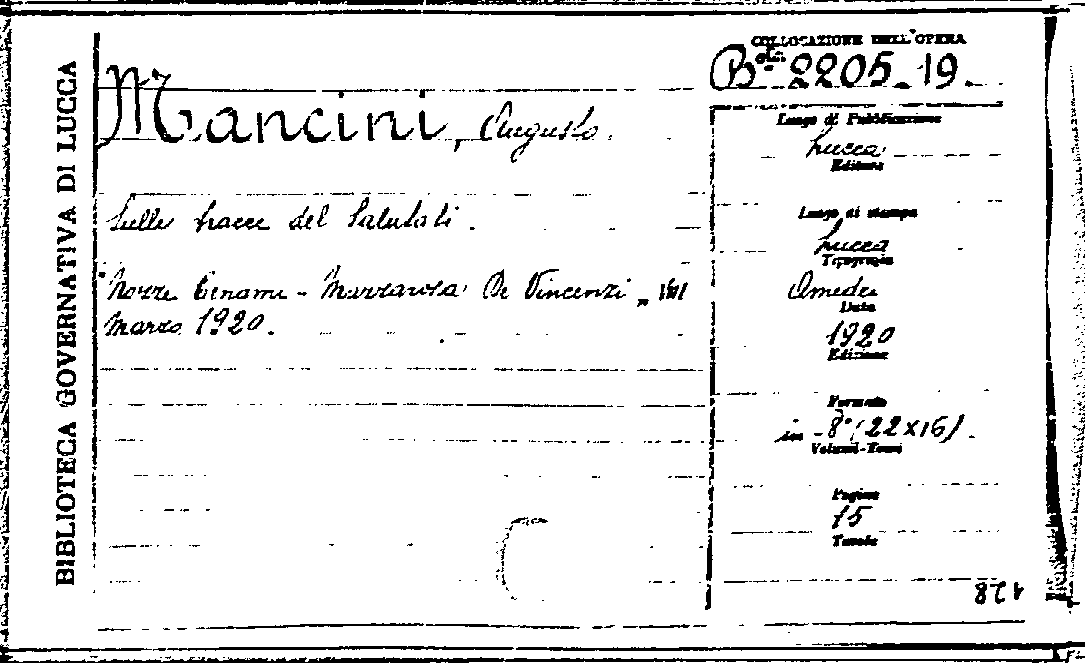 BIBLIOTECA GOVERNATIVA DI LUCCA
Mancini, Augusto.
Sulle tracce del Salutati.
Nozze Cenami - Mazzarosa De Vincenzi
Marzo 1920.
COLLOCAZIONE DELL'OPERA
2205.19.
Luogo di Pubblicazione
Lucca
Editore
Luogo di stampa
Lucca
Tipografia
Amedei
Data
1920
Edizione
Formato
in -8° (22x16).
Volumi-Tomi
Pagine
15
Tavole